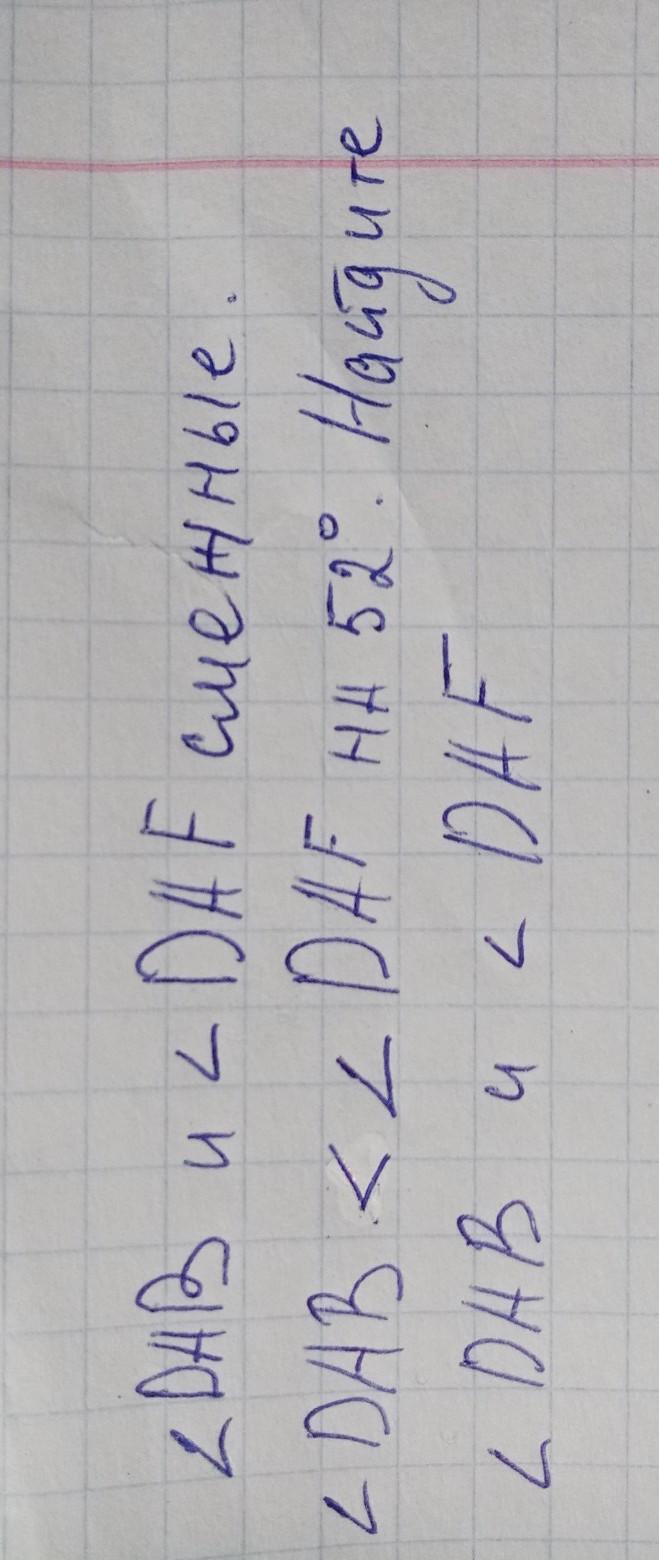 ∠DAB и ∠DAF смежные.
∠DAB < ∠DAF на 52°. Найдите
∠DAB и ∠DAF